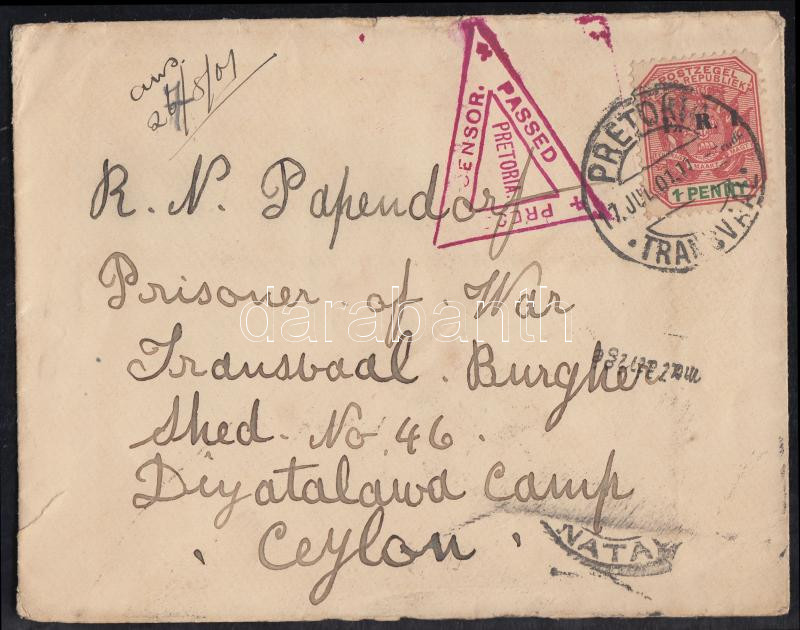 ans.
/8/01
PASSED
PRESS CENSOR.
PRETORIA.
POSTZEGEL
REPUBLIEK
1 PENNY
PRETORIA
JUL 01
TRANSVAAL
R. N. Papendorf
Prisoner of War
Transvaal Burgher
Shed. No 46.
Diyatalawa Camp
Ceylon
NATAL
darabanth